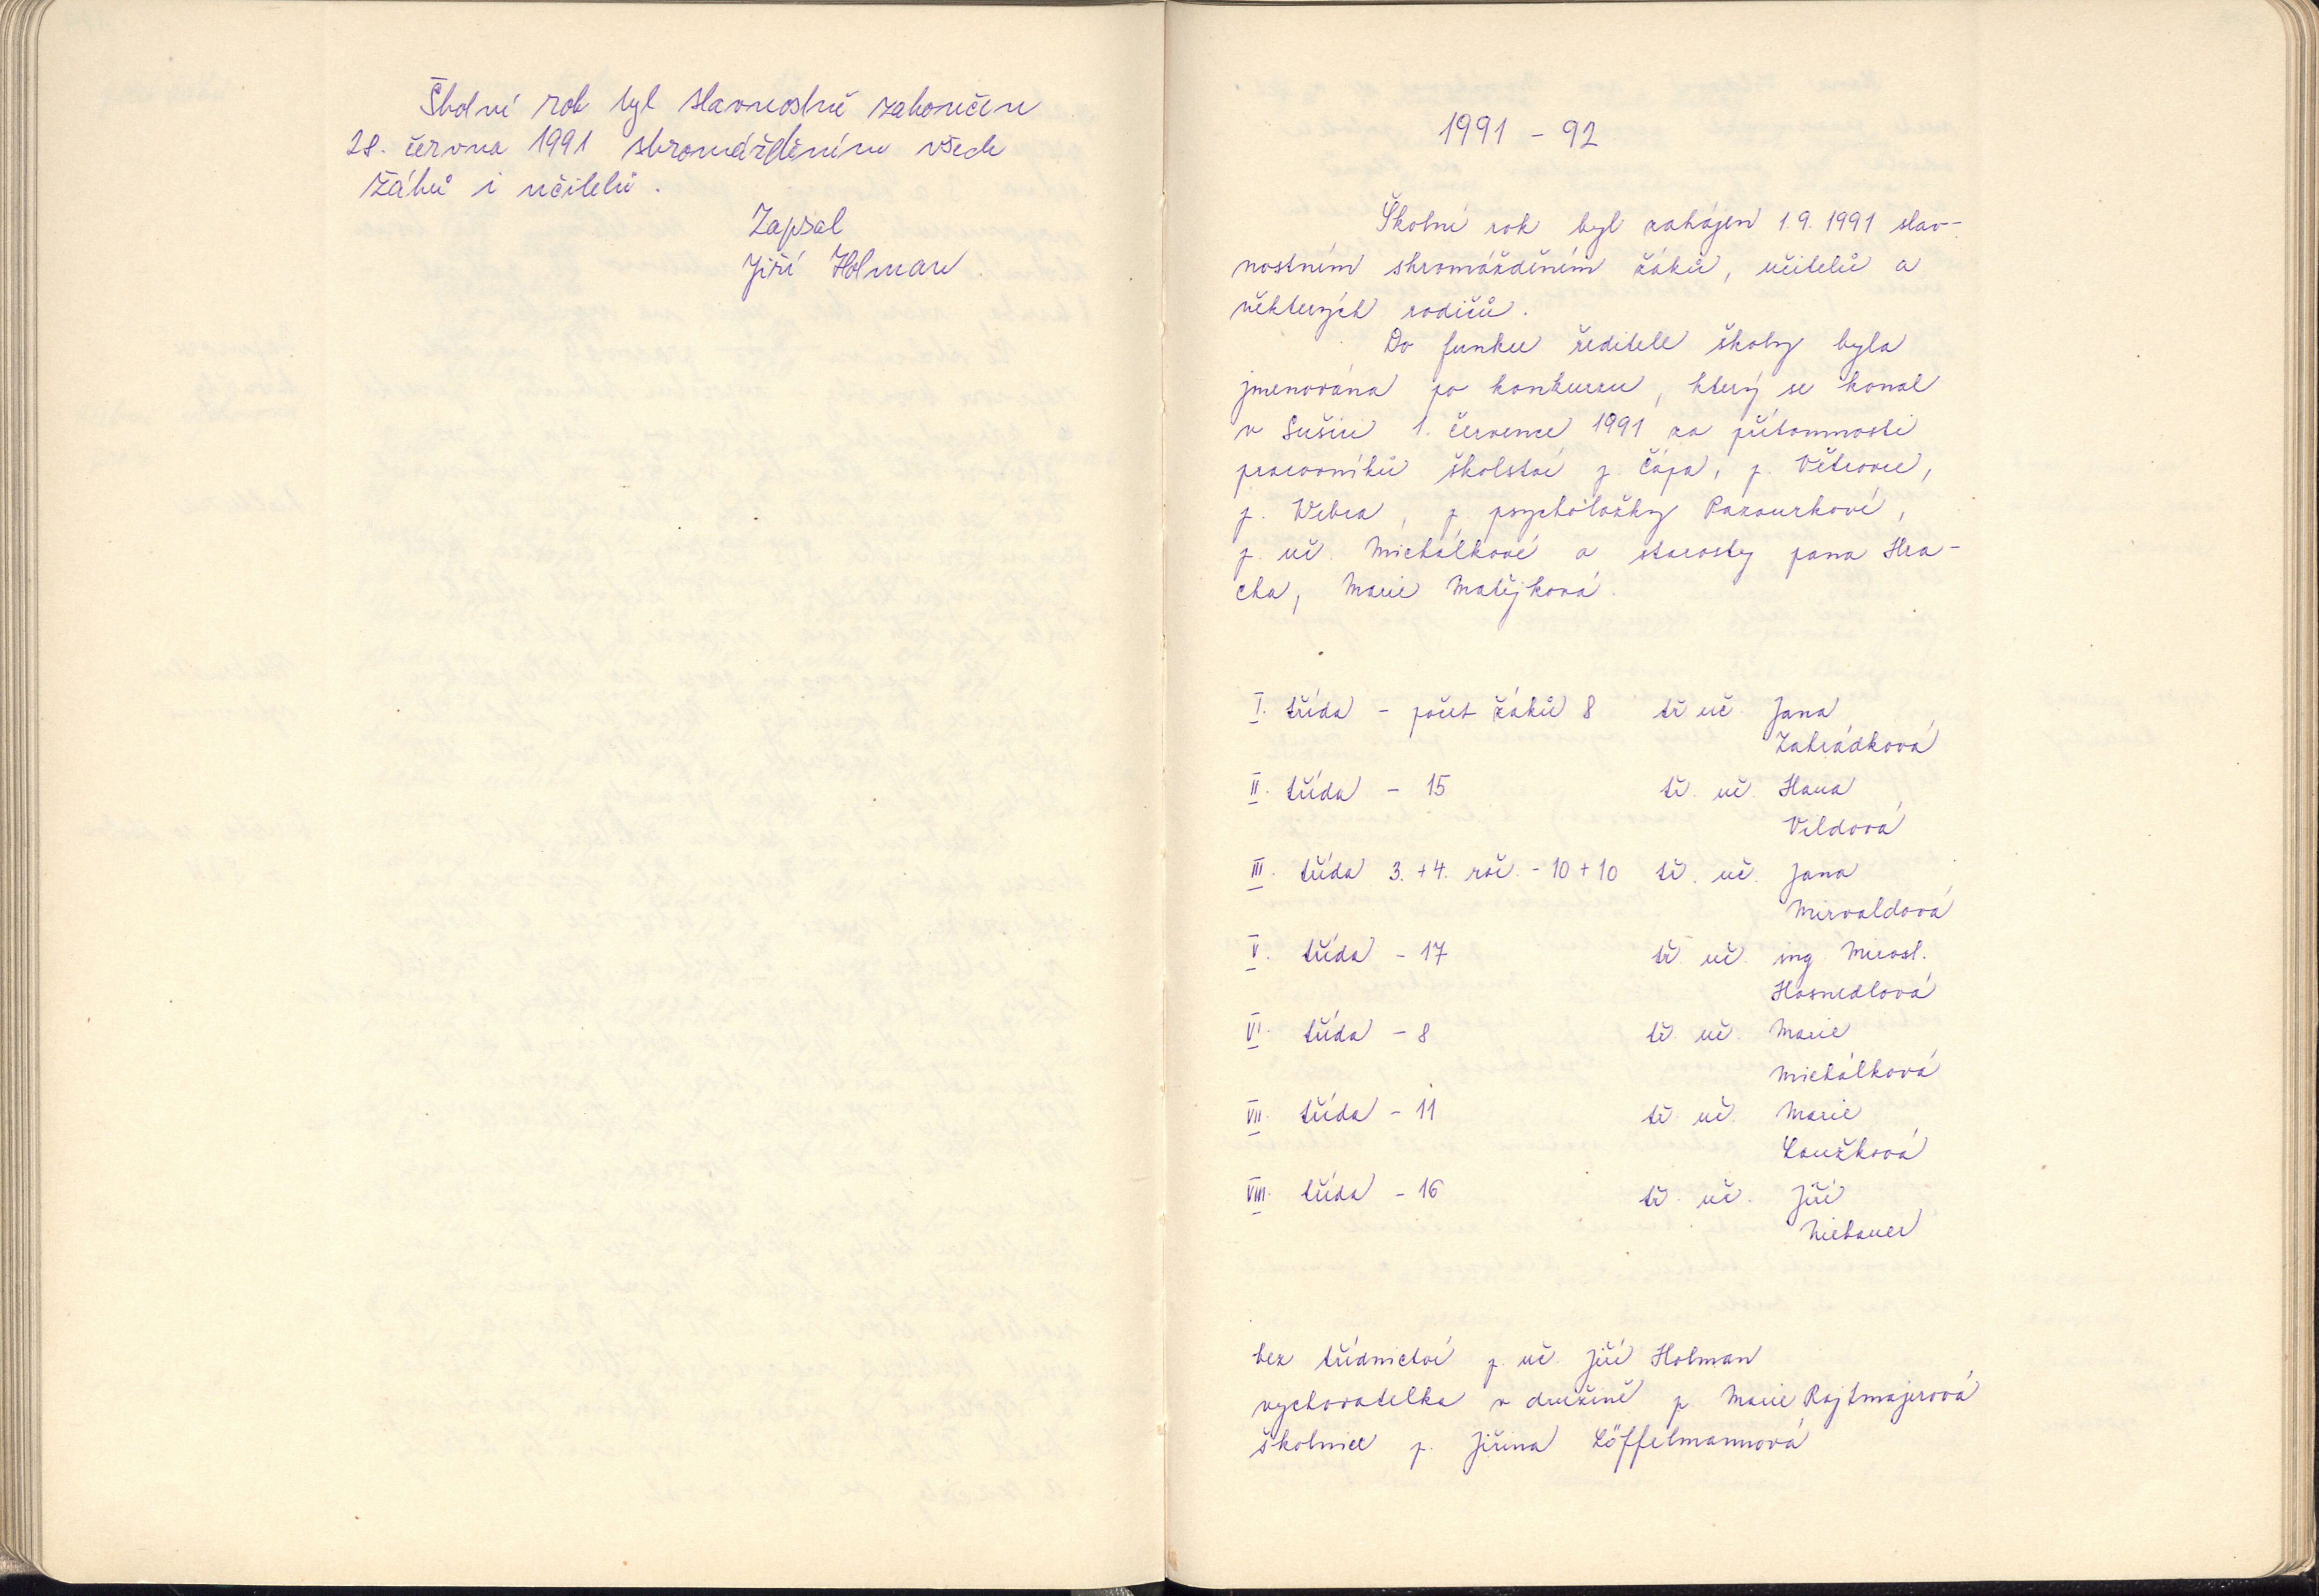 Školní rok byl slavnostně zakončen
28. června 1991 shromážděním všech
žáků i učitelů.
Zapsal
Jiří Holman
1991 - 92
Školní rok byl zahájen 1. 9. 1991 slav-
nostním shromážděním žáků, učitelů a
některých rodičů.
Do funkce ředitele školy byla
jmenována po konkurzu, který se konal
v Sušici 1. července 1991 za přítomnosti
pracovníků školství p. Čápa, p. Větrovce,
p. Webra, p. psycholožky Pazourkové,
p. uč. Michálkové a starosty pana Hra-
cha, Marie Matějková.
I. třída - počet žáků 8 tř. uč. Jana
Zahrádková
II. třída - 15 tř. uč. Hana
Vildová
III. třída 3. + 4. roč. - 10 + 10 tř. uč. Jana
Mirvaldová
V. třída - 17 tř. uč. ing. Mirosl.
Hosnedlová
VI. třída - 8 tř. uč. Marie
Michálková
VII. třída - 11 tř. uč. Marie
Loužková
VIII. třída - 16 tř. uč. Jiří
Niebauer
bez třídnictví p. uč. Jiří Holman
vychovatelka v družině p. Marie Rajtmajerová
školnice p. Jiřina Löffelmannová